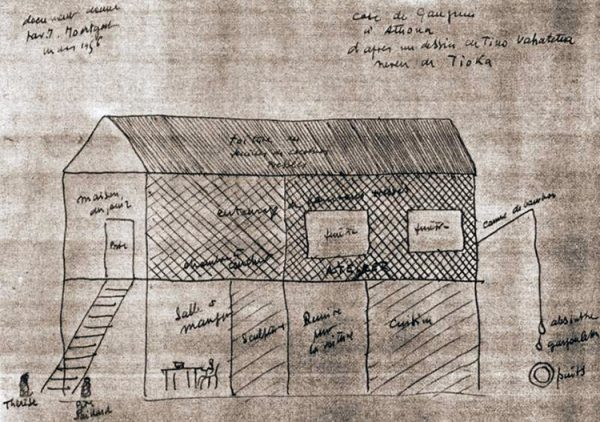 document donné
par J.
mars 195
case de Gauguin
à Atuona
d'après un dessin de Tino Vahatetua
neveu de Tioka
toiture en
feuilles de cocotier
tressées
maison
du jouir
Porte
entourage de bambous tressés
fenêtre
fenêtre
chambre à
coucher
ATELIER
canne de bambou
Salle à
manger
Sculpture
Remise
pour
la voiture
Cuisine
absinthe
gargoulette
puits
Thérèse
père
Paillard